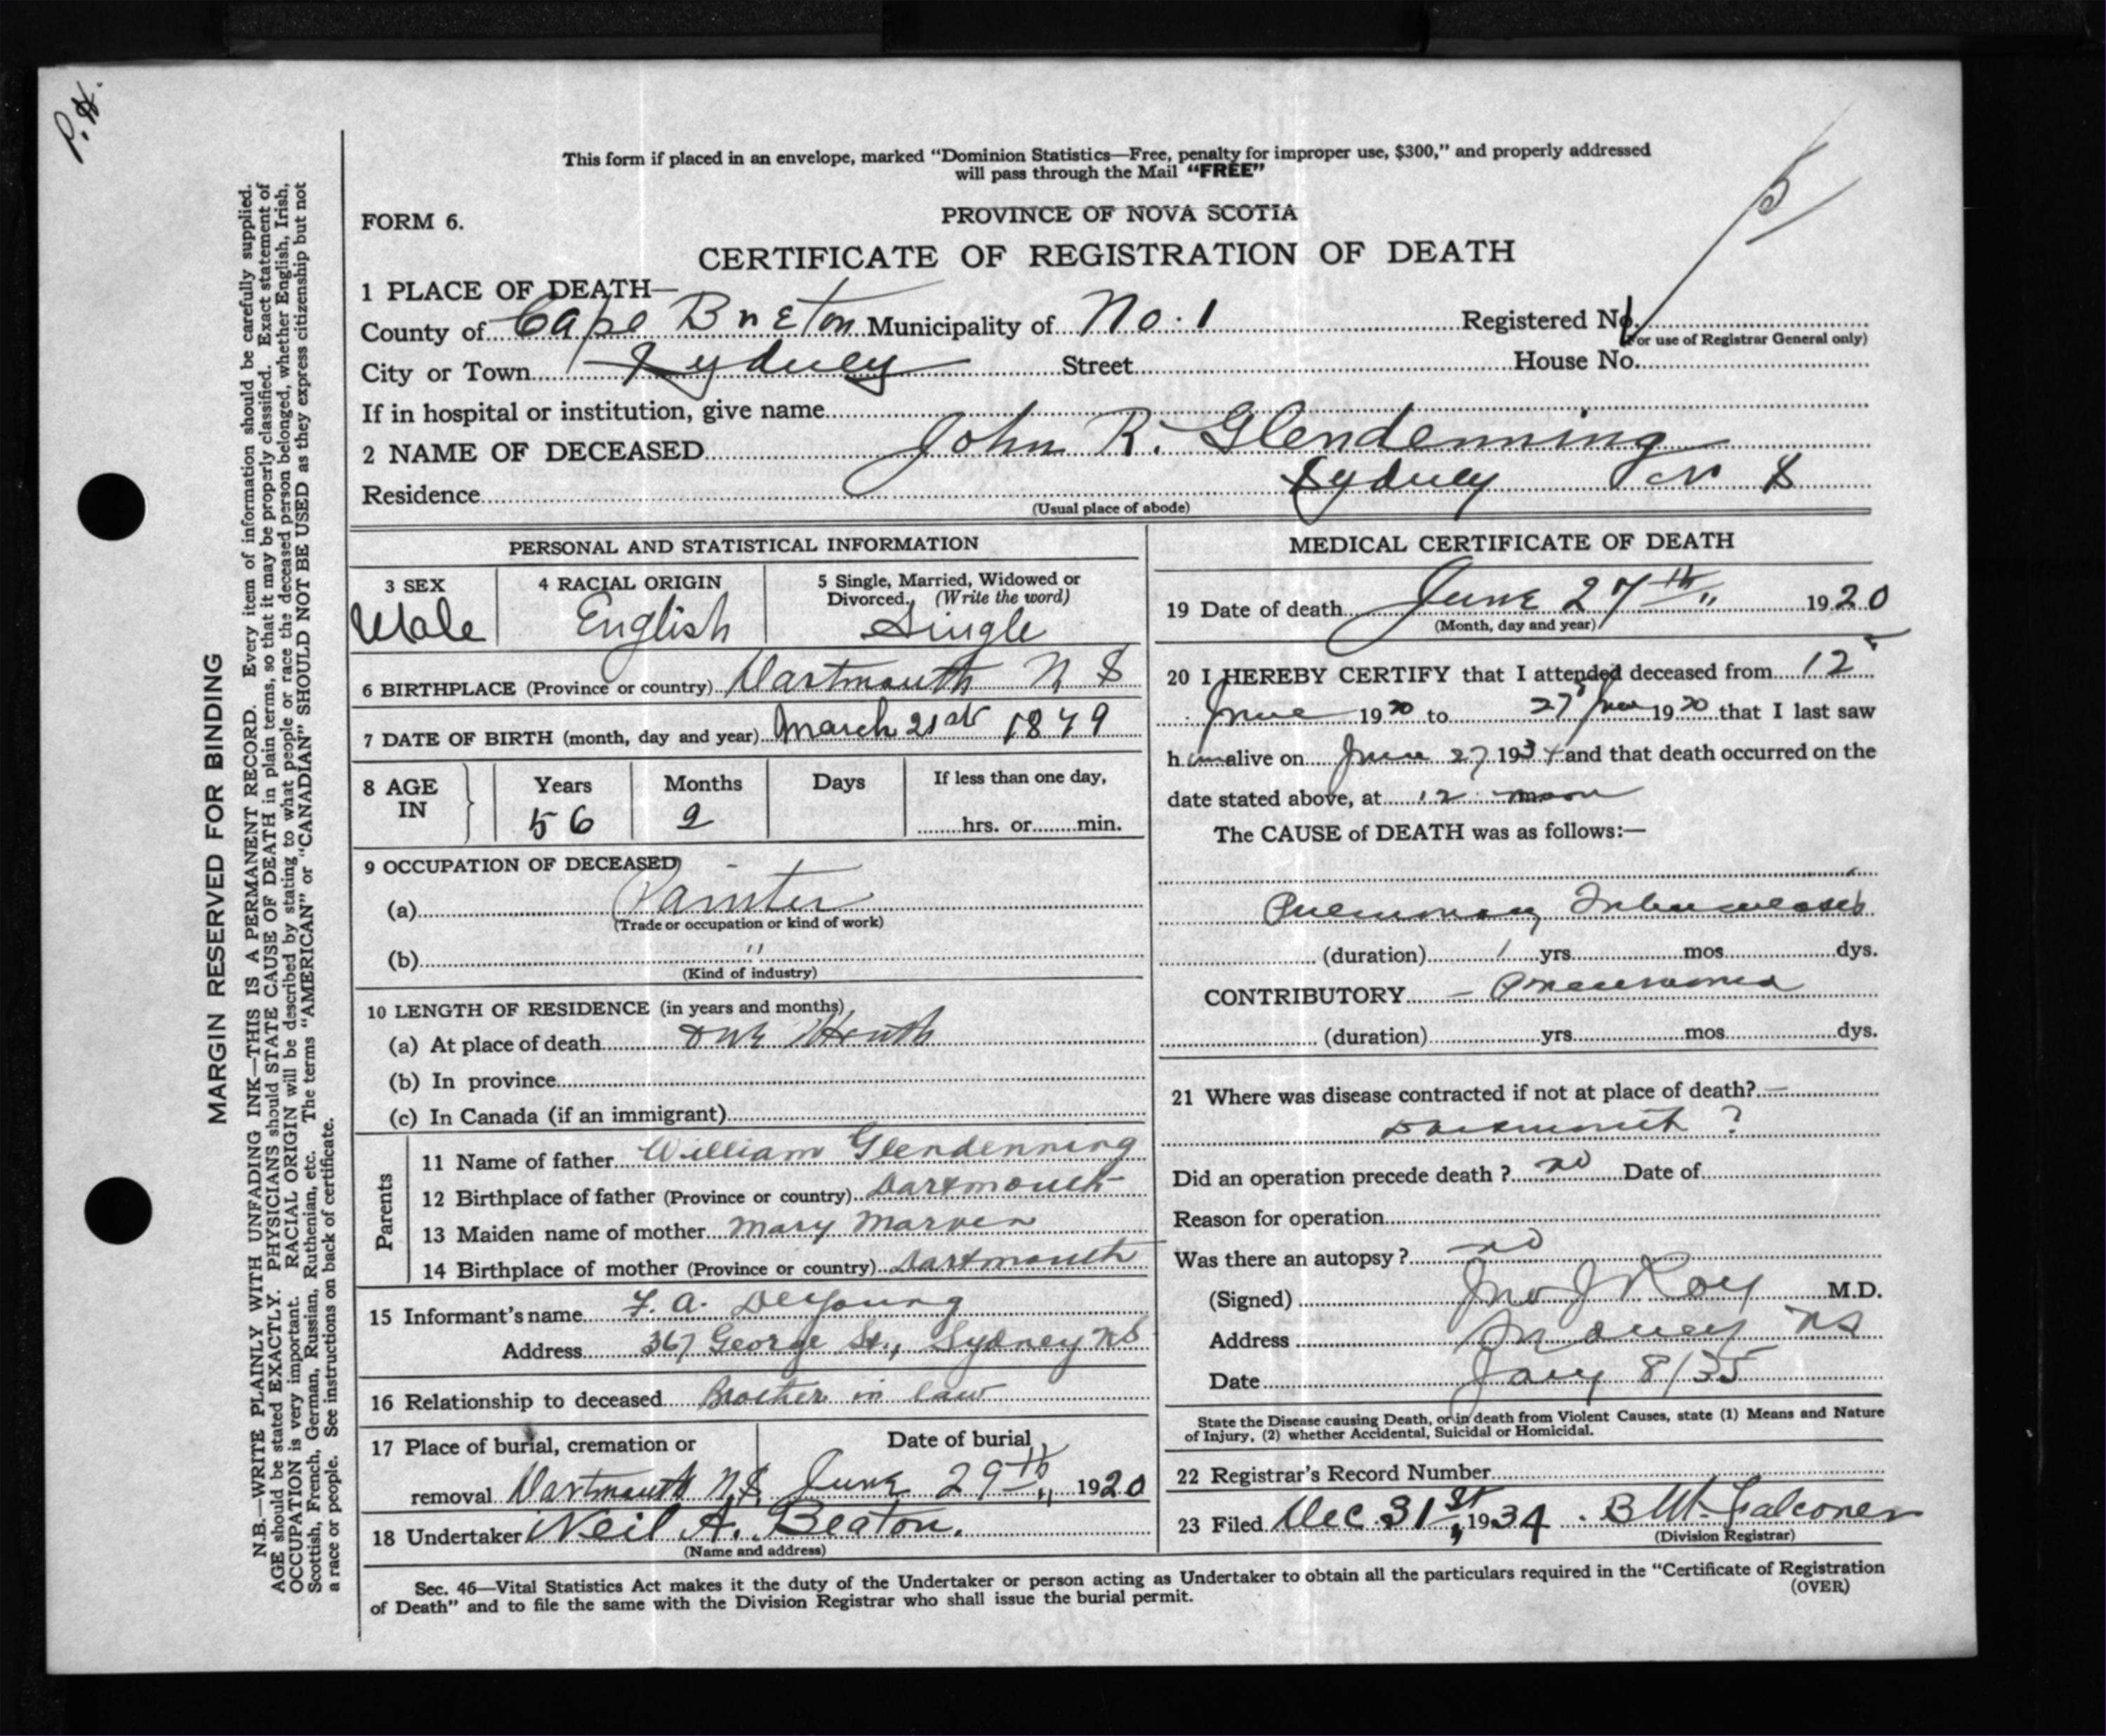 P.H.
This form if placed in an envelope, marked "Dominion Statistics—Free, penalty for improper use, $300," and properly addressed
will pass through the Mail "FREE"
FORM 6.
PROVINCE OF NOVA SCOTIA
CERTIFICATE OF REGISTRATION OF DEATH
1 PLACE OF DEATH—
County of Cape Breton Municipality of No. 1 Registered No.
(For use of Registrar General only)
City or Town Sydney Street House No.
If in hospital or institution, give name
2 NAME OF DECEASED John R. Glendenning
Residence Sydney N S
(Usual place of abode)
PERSONAL AND STATISTICAL INFORMATION
3 SEX Male
4 RACIAL ORIGIN English
5 Single, Married, Widowed or
Divorced. (Write the word)
Single
6 BIRTHPLACE (Province or country) Dartmouth N S
7 DATE OF BIRTH (month, day and year) March 21st 1879
8 AGE IN Years Months Days If less than one day,
56 2 hrs. or min.
9 OCCUPATION OF DECEASED
(a) Painter
(Trade or occupation or kind of work)
(b) "
(Kind of industry)
10 LENGTH OF RESIDENCE (in years and months)
(a) At place of death One Month
(b) In province
(c) In Canada (if an immigrant)
Parents
11 Name of father William Glendenning
12 Birthplace of father (Province or country) Dartmouth
13 Maiden name of mother Mary Marven
14 Birthplace of mother (Province or country) Dartmouth
15 Informant's name F. A. DeYoung
Address 367 George St., Sydney NS
16 Relationship to deceased Brother in law
17 Place of burial, cremation or Date of burial
removal Dartmouth N.S. June 29th 1920
18 Undertaker Neil A. Beaton.
(Name and address)
MEDICAL CERTIFICATE OF DEATH
19 Date of death June 27th 1920
(Month, day and year)
20 I HEREBY CERTIFY that I attended deceased from 12
June 1920 to 27 June 1920 that I last saw
him alive on June 27 1934 and that death occurred on the
date stated above, at 12 noon
The CAUSE of DEATH was as follows:—
Pulmonary Tuberculosis
(duration) 1 yrs. mos. dys.
CONTRIBUTORY — Pneumonia
(duration) yrs. mos. dys.
21 Where was disease contracted if not at place of death? —
Dartmouth ?
Did an operation precede death ? no Date of
Reason for operation
Was there an autopsy ? no
(Signed) Jno J Roy M.D.
Address Sydney NS
Date Jany 8/35
State the Disease causing Death, or in death from Violent Causes, state (1) Means and Nature
of Injury, (2) whether Accidental, Suicidal or Homicidal.
22 Registrar's Record Number
23 Filed Dec 31st, 1934. B M. Falconer
(Division Registrar)
Sec. 46—Vital Statistics Act makes it the duty of the Undertaker or person acting as Undertaker to obtain all the particulars required in the "Certificate of Registration
of Death" and to file the same with the Division Registrar who shall issue the burial permit.
(OVER)
MARGIN RESERVED FOR BINDING
N.B.—WRITE PLAINLY WITH UNFADING INK—THIS IS A PERMANENT RECORD. Every item of information should be carefully supplied.
AGE should be stated EXACTLY. PHYSICIANS should STATE CAUSE OF DEATH in plain terms, so that it may be properly classified. Exact statement of
OCCUPATION is very important. RACIAL ORIGIN will be described by stating to what people or race the deceased person belonged, whether English, Irish,
Scottish, French, German, Russian, Ruthenian, etc. The terms "AMERICAN" or "CANADIAN" SHOULD NOT BE USED as they express citizenship but not
a race or people. See instructions on back of certificate.